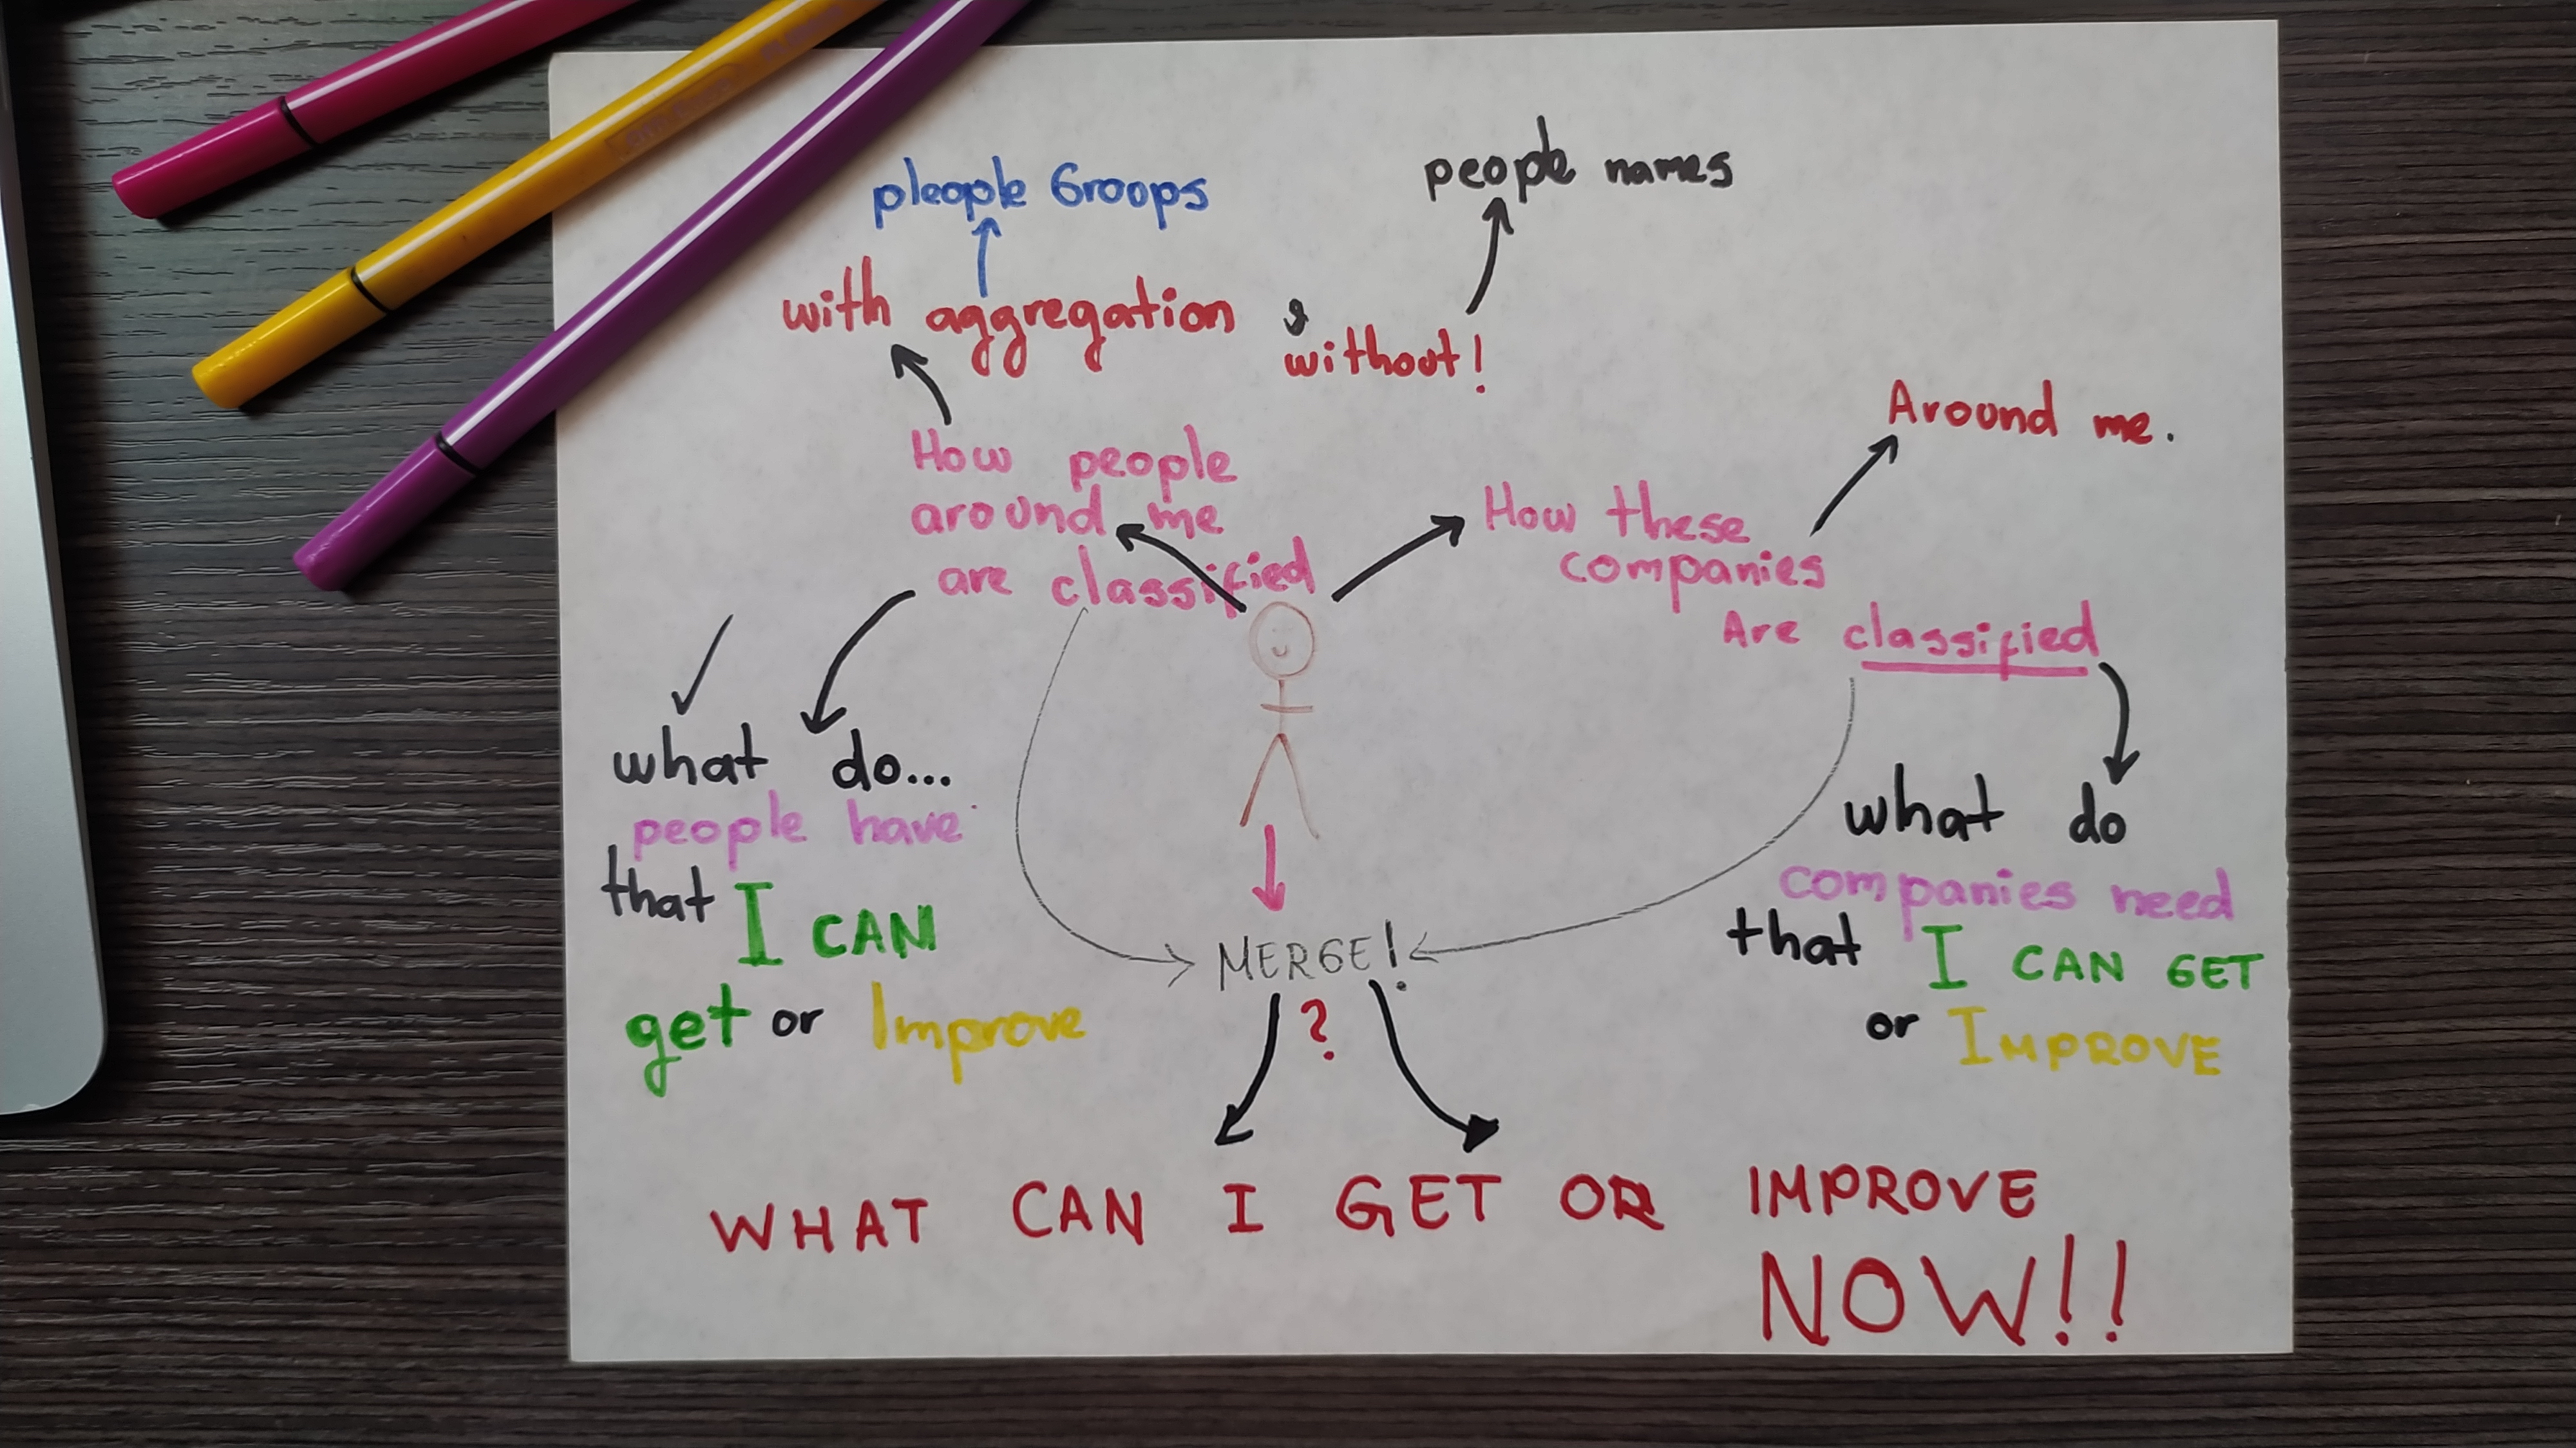 pleople Groops
people names
with aggregation & without!
How people
around me
are classified
Around me.
How these
companies
Are classified
what do...
people have
that I CAN
get or Improve
what do
companies need
that I CAN GET
or IMPROVE
MERGE!
?
WHAT CAN I GET OR IMPROVE
NOW!!